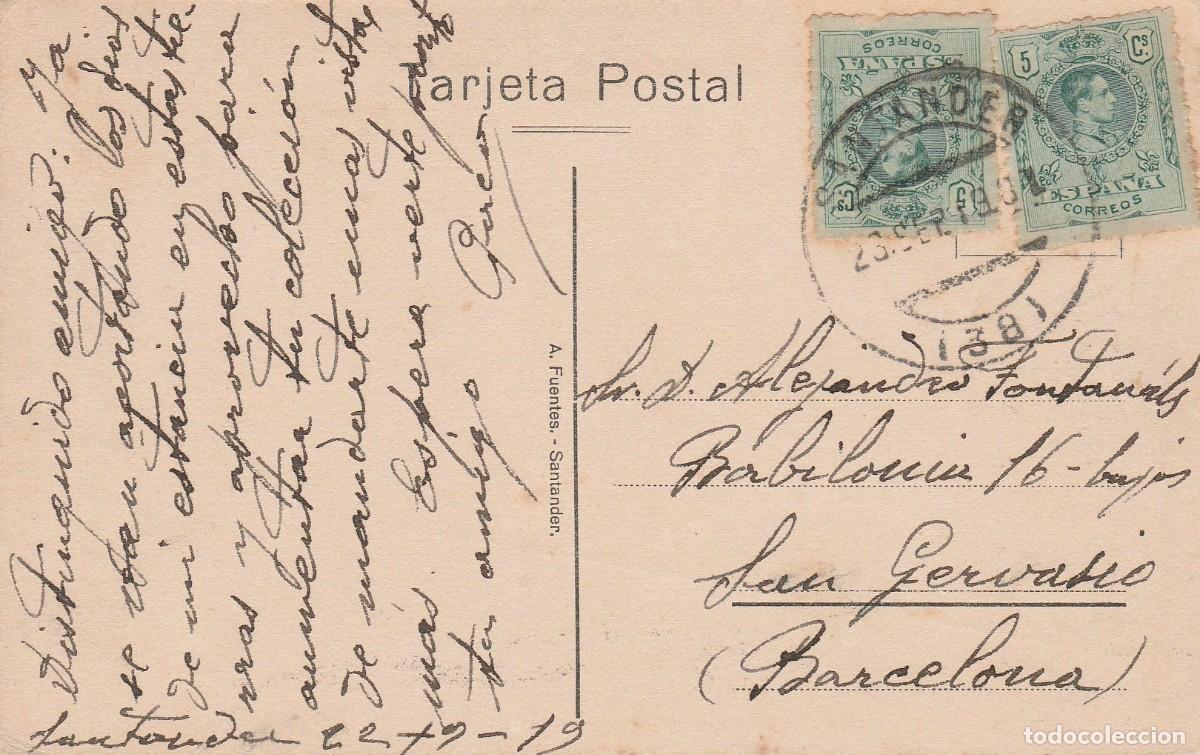 Tarjeta Postal
Distinguido amigo: Ya
se van acortando los dias
de mi estancia en estas tie-
rras y aprovecho para
aumentar tu colección
de mandarte unas vistas
más. Espera verte pronto
tu amigo García
Santander 22-9-19
A. Fuentes. - Santander.
CORREOS
ESPAÑA
5 Cs
5 Cs
ESPAÑA
CORREOS
SANTANDER
23.SEP.19
1381
Sr. D. Alejandro Fontanáls
Babilonia 16 - bajos
San Gervasio
(Barcelona)
todocoleccion